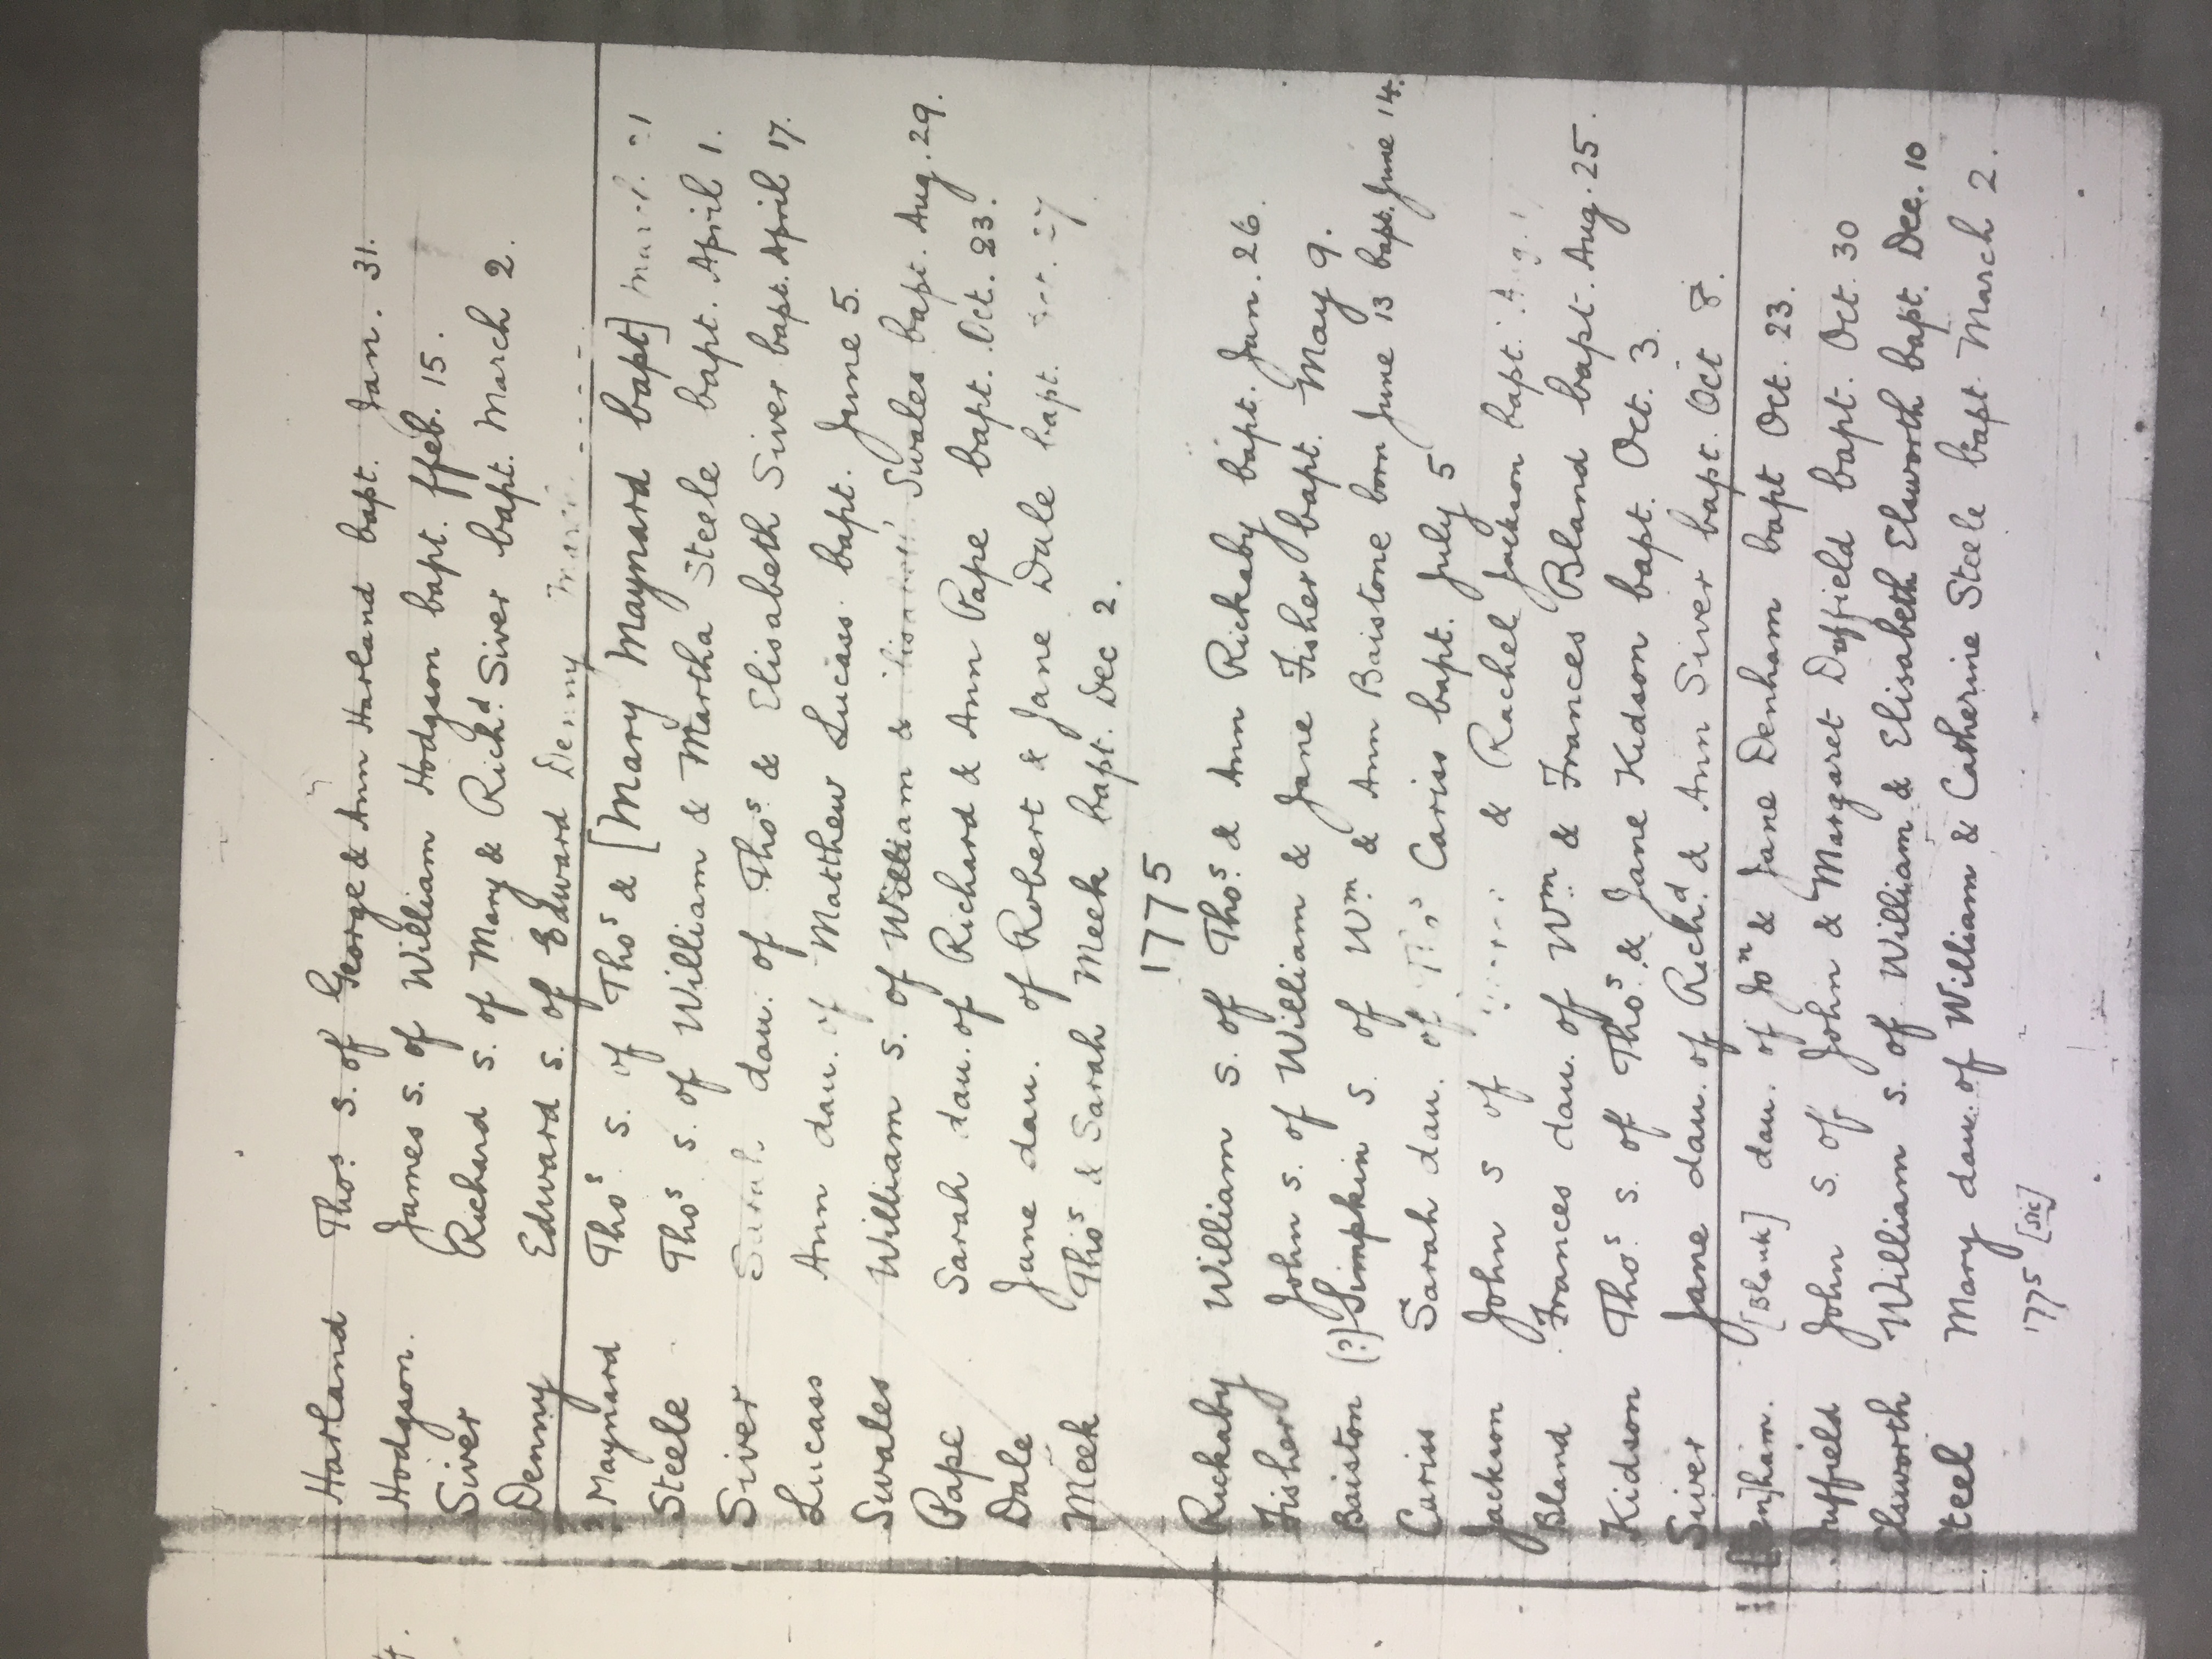 Harland Thos. s. of George & Ann Harland bapt. Jan. 31.
Hodgson. James s. of William Hodgson bapt. ffeb. 15.
Siver Richard s. of Mary & Richd. Siver bapt. March 2.
Denny Edward s. of Edward Denny
? Maynard Thos s. of Thos & [Mary Maynard bapt]
Steele Thos s. of William & Martha Steele bapt. April 1.
Siver Sarah dau. of Thos & Elisabeth Siver bapt. April 17.
Lucass Ann dau. of Matthew Lucass bapt. June 5.
Swales William s. of William & Swales bapt. Aug. 29.
Pape Sarah dau. of Richard & Ann Pape bapt. Oct. 23.
Dale Jane dau. of Robert & Jane Dale bapt.
Meek Thos & Sarah Meek bapt. Dec 2.
1775
Rickaby William s. of Thos. & Ann Rickaby bapt. Jan. 26.
Fisher John s. of William & Jane Fisher bapt. May 9.
Baiston (?) Simpkin s. of Wm. & Ann Baistone born June 13 bapt. June 14.
Cariss Sarah dau. of Thos Cariss bapt. July 5
Jackson John s of & Rachel Jackson bapt.
Bland Frances dau. of Wm. & Frances Bland bapt. Aug. 25.
Kidson Thos. s. of Thos. & Jane Kidson bapt. Oct. 3.
Siver Jane dau. of Richd. & Ann Siver bapt. Oct 8.
[Den]ham. [Blank] dau. of Jon & Jane Denham bapt Oct. 23.
Duffield John s. of John & Margaret Duffield bapt. Oct. 30
Elsworth William s. of William & Elisabeth Elsworth bapt. Dec. 10
Steel Mary dau. of William & Catherine Steele bapt. March 2.
1775 [sic]